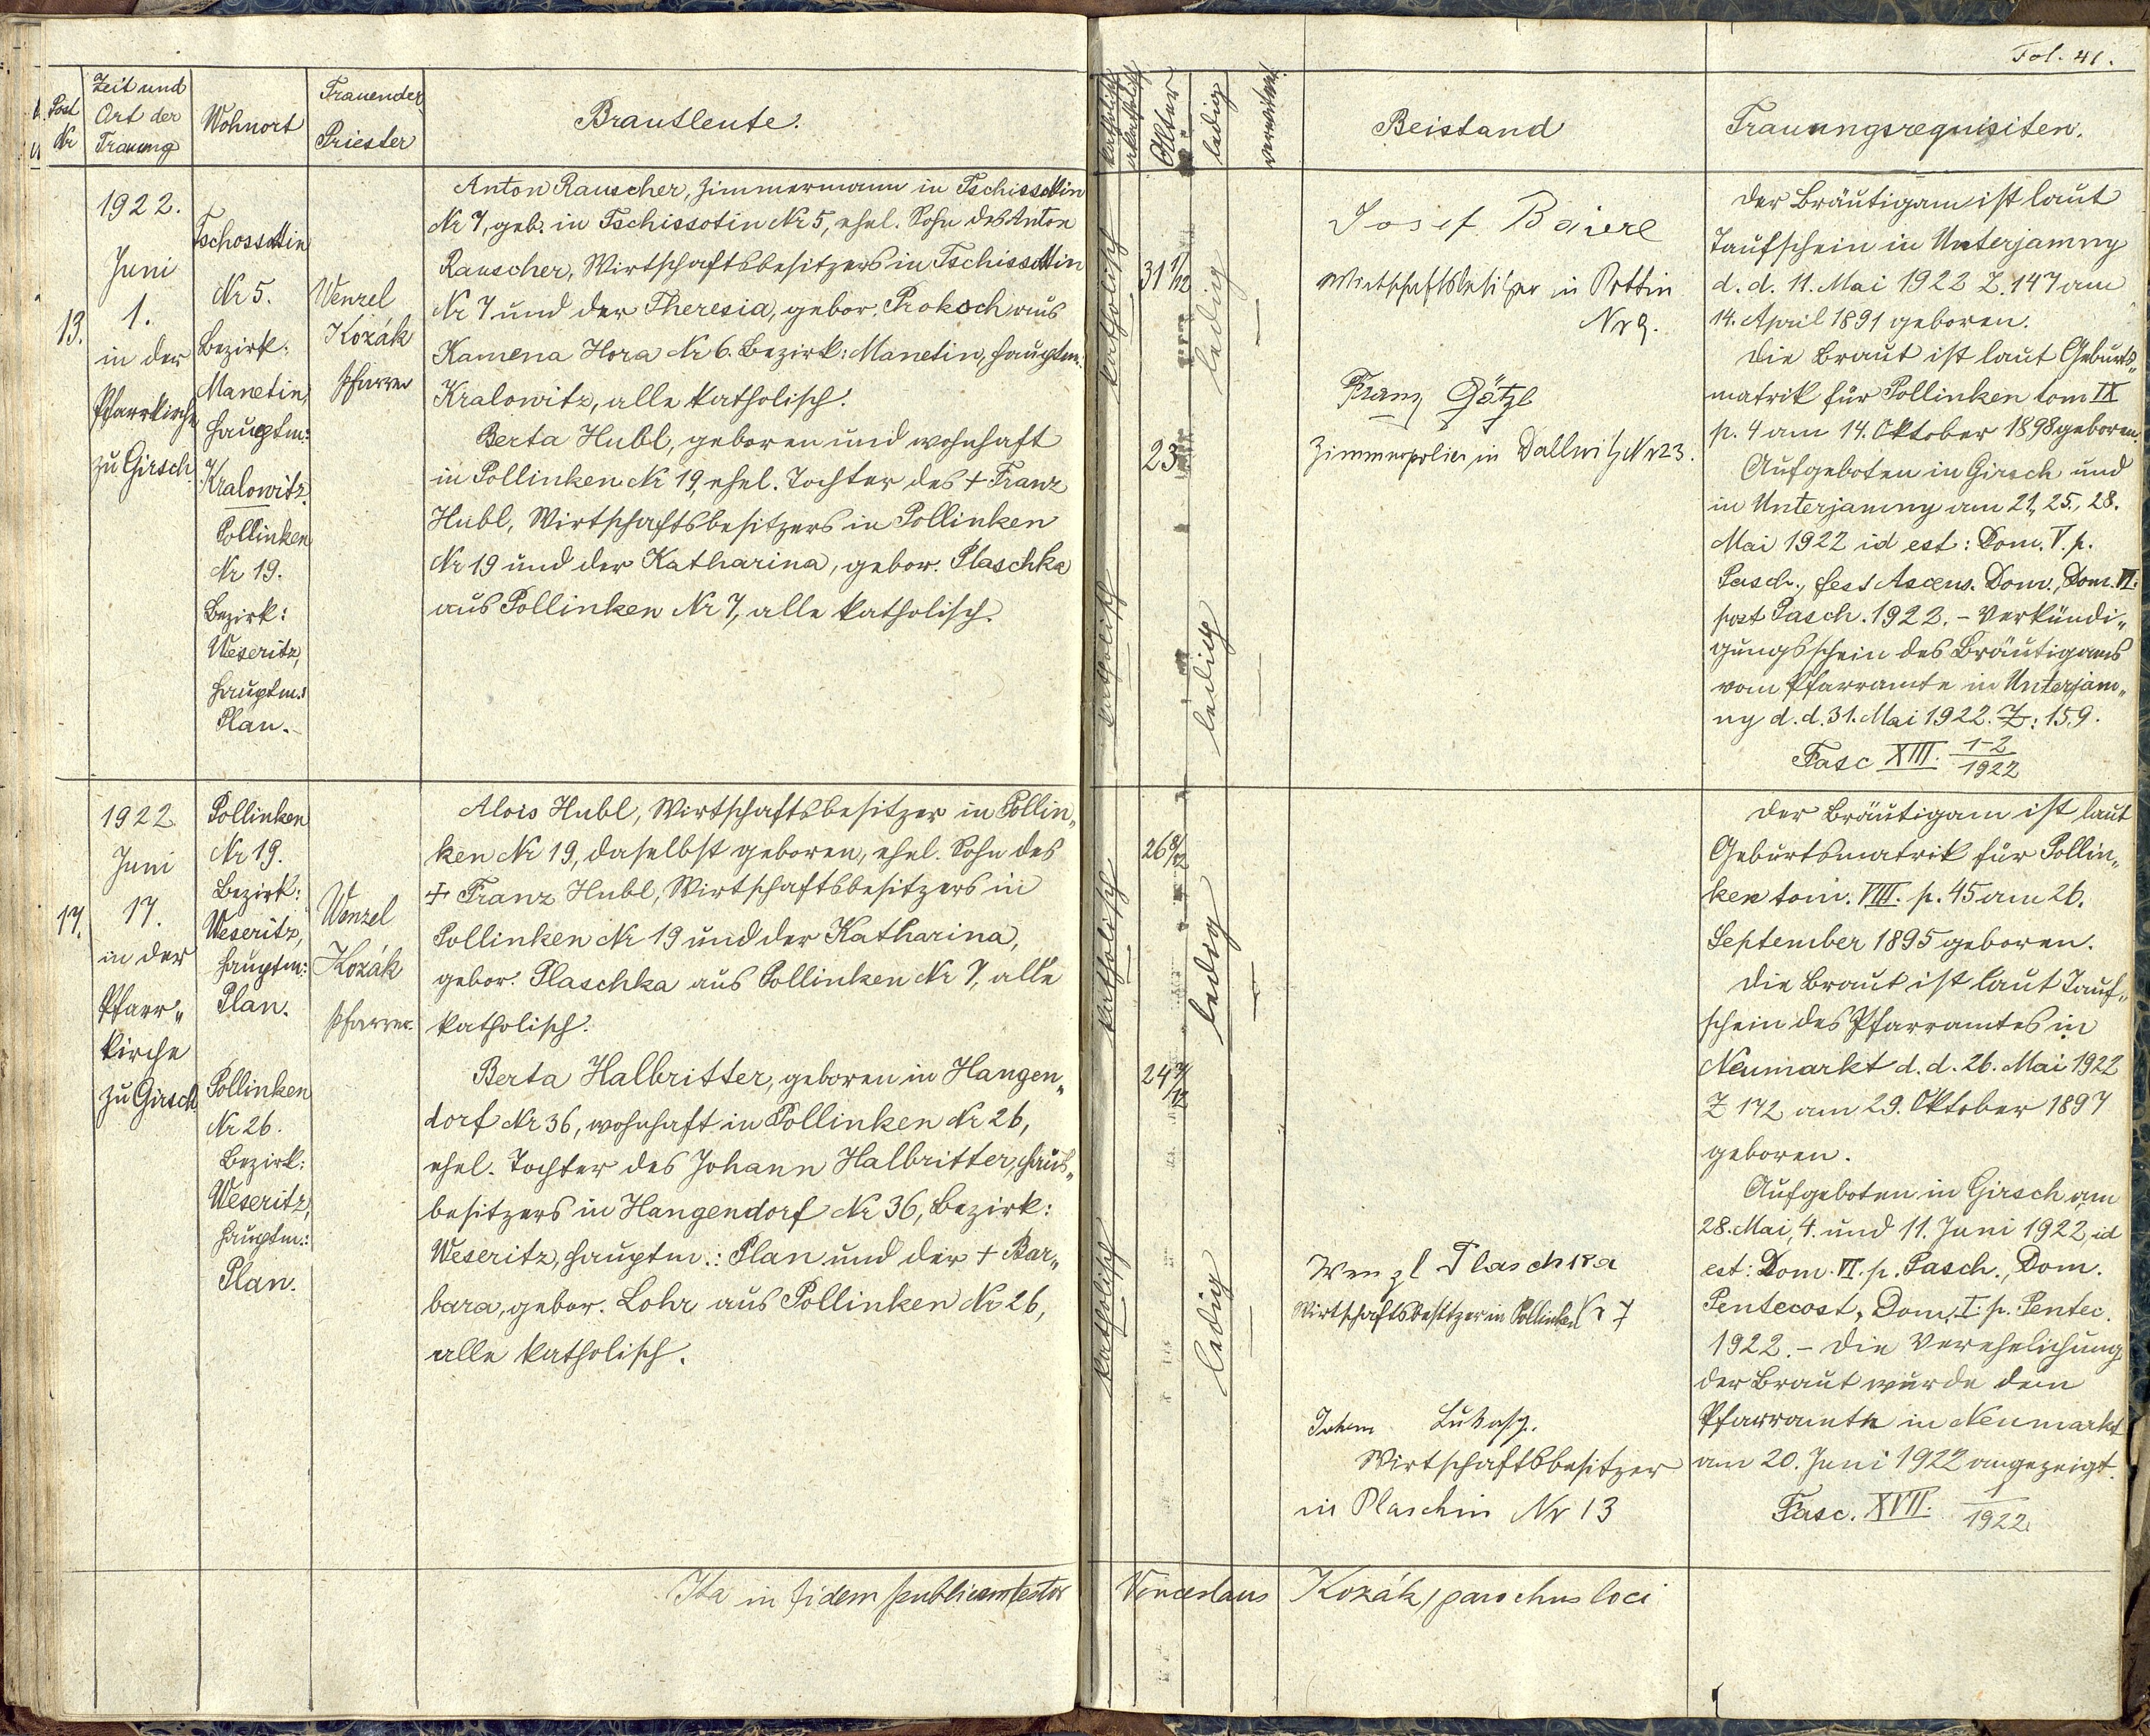 Fol. 41.
Post Nr
Zeit und Ort der Trauung
Wohnort
Trauender Priester
Brautleute.
katholisch
akatholisch
Alter
ledig
verwitwet
Beistand
Trauungsrequisiten.
13.
1922.
Juni
1.
in der
Pfarrkirche
zu Girsch
Tschossottin
Nr 5.
Bezirk:
Manetin,
Hauptm:
Kralowitz
Pollinken
Nr 19.
Bezirk:
Weseritz,
Hauptm.:
Plan.
Wenzel
Kozák
Pfarrer
Anton Rauscher, Zimmermann in Tschissottin
Nr 7, geb. in Tschissotin Nr 5, ehel. Sohn des Anton
Rauscher, Wirtschaftsbesitzers in Tschissottin
Nr 7 und der Theresia, gebor. Prokosch aus
Kamena Hora Nr 6. Bezirk: Manetin, Hauptm.
Kralowitz, alle katholisch.
Berta Hubl, geboren und wohnhaft
in Pollinken Nr 19, ehel. Tochter des + Franz
Hubl, Wirtschaftsbesitzers in Pollinken
Nr 19 und der Katharina, gebor. Plaschka
aus Pollinken Nr 7, alle katholisch.
katholisch
31 1/12
ledig
katholisch
23
ledig
Josef Baierl
Wirtschaftsbesitzer in Pottin
Nr 9.
Franz Götzl
Zimmerpolier in Dallwitz Nr 23.
Der Bräutigam ist laut
Taufschein in Unterjamny
d. d. 11. Mai 1922 Z. 147 am
14. April 1891 geboren.
Die Braut ist laut Geburts„
matrik für Pollinken tom IX
p. 4 am 14. Oktober 1898 geboren.
Aufgeboten in Girsch und
in Unterjamny am 21., 25., 28.
Mai 1922 id est: Dom. V. p.
Pasch., fest Ascens. Dom., Dom. VI.
post Pasch. 1922. - Verkündi„
gungsschein des Bräutigams
vom Pfarramte in Unterjam„
ny d. d. 31. Mai 1922. Z: 159.
Fasc XIII. 1-2/1922
17.
1922
Juni
17.
in der
Pfarr„
kirche
zu Girsch
Pollinken
Nr 19.
Bezirk:
Weseritz,
Hauptm:
Plan.
Pollinken
Nr 26.
Bezirk:
Weseritz,
Hauptm.:
Plan.
Wenzel
Kozák
Pfarrer.
Alois Hubl, Wirtschaftsbesitzer in Pollin„
ken Nr 19, daselbst geboren, ehel. Sohn des
+ Franz Hubl, Wirtschaftsbesitzers in
Pollinken Nr 19 und der Katharina,
gebor. Plaschka aus Pollinken Nr 7, alle
katholisch.
Berta Halbritter, geboren in Hangen„
dorf Nr 36, wohnhaft in Pollinken Nr 26,
ehel. Tochter des Johann Halbritter, Haus„
besitzers in Hangendorf Nr 36, Bezirk:
Weseritz, Hauptm.: Plan und der + Bar„
bara, gebor. Lohr aus Pollinken Nr 26,
alle katholisch.
katholisch
26 8/12
ledig
katholisch
24 7/12
ledig
Wenzl Plaschka
Wirtschaftsbesitzer in Pollinken Nr 7
Lukasch.
Wirtschaftsbesitzer
in Plaschin Nr 13
Der Bräutigam ist laut
Geburtsmatrik für Pollin„
ken tom. VIII. p. 45 am 26.
September 1895 geboren.
Die Braut ist laut Tauf„
schein des Pfarramtes in
Neumarkt d. d. 26. Mai 1922
Z 172 am 29. Oktober 1897
geboren.
Aufgeboten in Girsch am
28. Mai, 4. und 11. Juni 1922, id
est: Dom. VI. p. Pasch., Dom.
Pentecost, Dom. I. p. Pentec.
1922. - Die Verehelichung
der Braut wurde dem
Pfarramte in Neumarkt
am 20. Juni 1922 angezeigt.
Fasc. XVII. 1/1922
Ita in fidem publicam testor Venceslaus Kozák, parochus loci